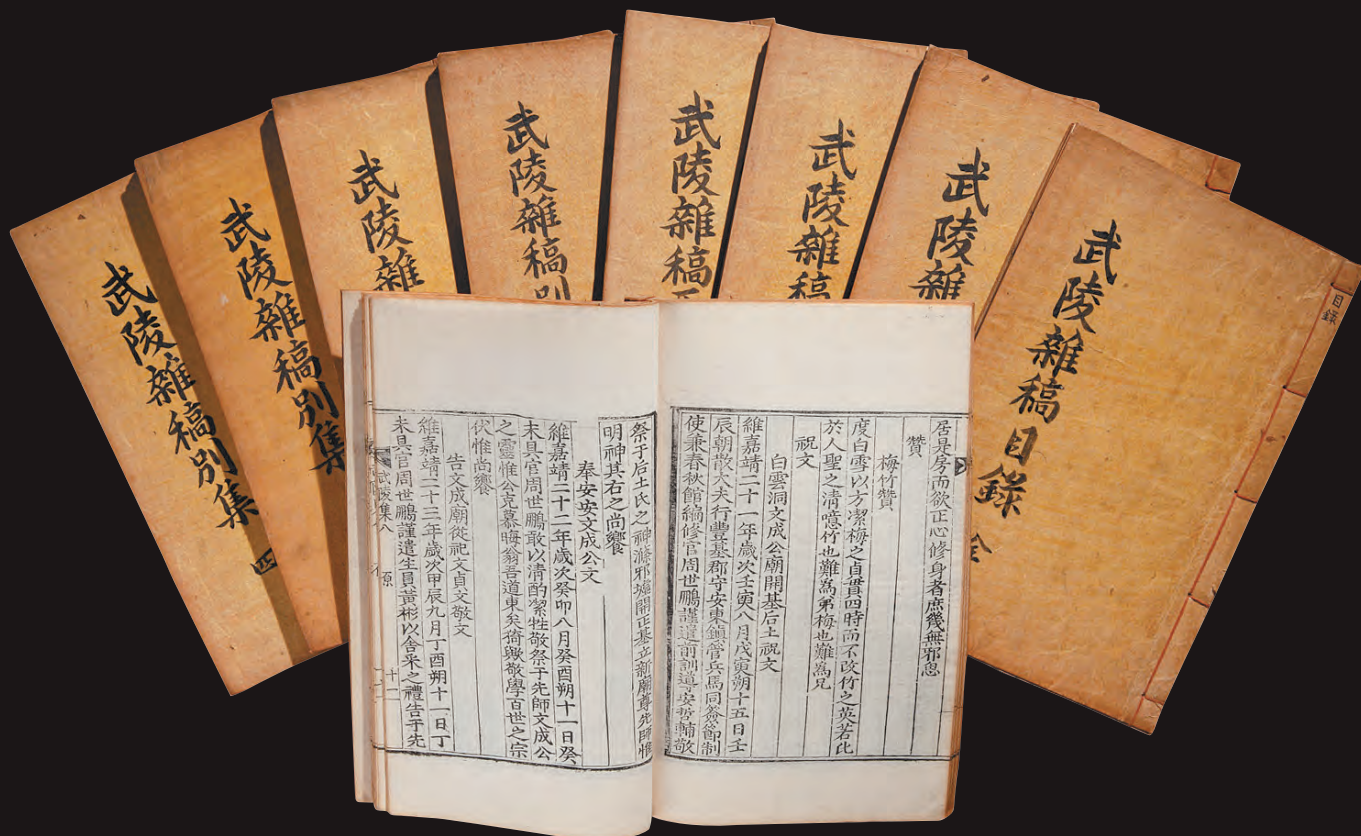 武陵雜稿目錄 全
目錄
武陵雜
武陵雜稿
武陵雜稿
武陵雜稿別
武陵雜
武陵雜稿別集
武陵雜稿別集 四
居是房而欲正心修身者庶幾無邪思
贊
梅竹贊
度白雪以方潔梅之貞貫四時而不改竹之英若比
於人聖之清噫竹也難為弟梅也難為兄
祝文
白雲洞文成公廟開基后土祝文
維嘉靖二十一年歲次壬寅八月戊寅朔十五日壬
辰朝散大夫行豐基郡守安東鎮管兵馬同僉節制
使兼春秋館編修官周世鵬謹遣前訓導安哲輔敬
祭于后土氏之神滌邪墟開正基立新廟尊先師惟
明神其右之尚饗
奉安安文成公文
維嘉靖二十二年歲次癸卯八月癸酉朔十一日癸
未具官周世鵬敢以清酌潔牲敬祭于先師文成公
之靈惟公克慕晦翁吾道東矣猗歟敬學百世之宗
伏惟尚饗
告文成廟從祀文貞文敬文
維嘉靖二十三年歲次甲辰九月丁酉朔十一日丁
未具官周世鵬謹遣生員黃彬以舍采之禮告于先
武陵集八 原